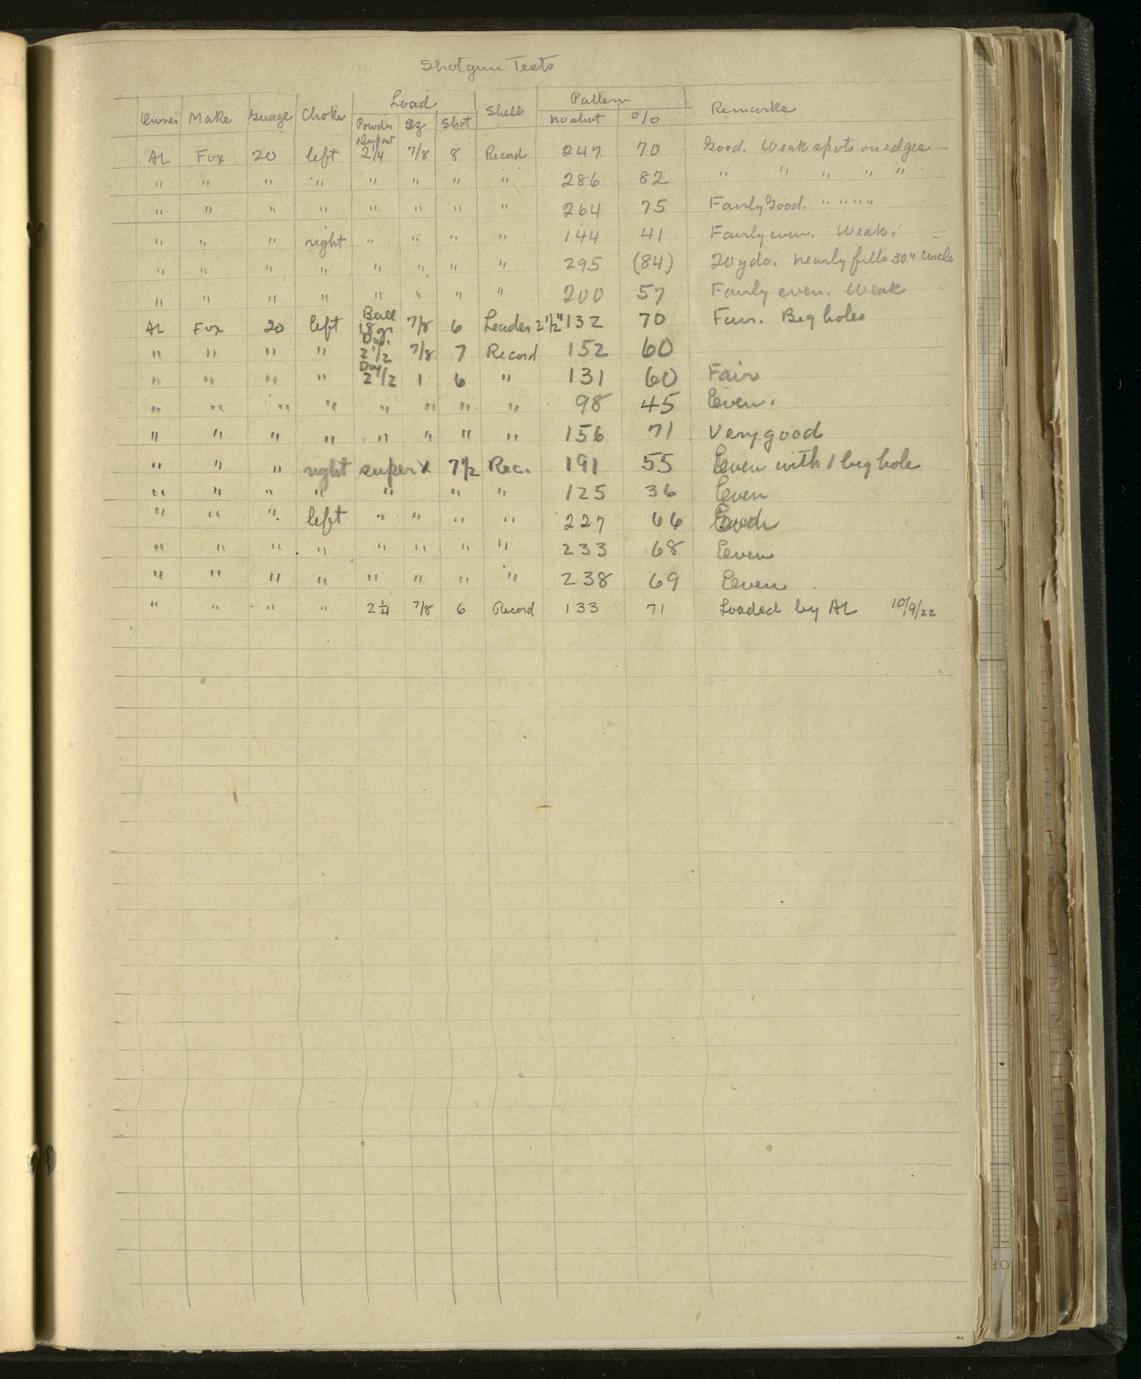 Shotgun Tests
Load Pattern
Owner Make Guage Choke Powder Oz Shot Shell No shot % Remarks
Dupont
AL Fox 20 left 2 1/4 7/8 8 Record 247 70 Good. Weak spots on edges
" " " " " " " " 286 82 " " " " "
" " " " " " " " 264 75 Fairly Good. " " " " "
" " " right " " " " 144 41 Fairly even. Weak.
" " " " " " " " 295 (84) 20 yds. nearly fills 30" circle
" " " " " " " " 200 57 Fairly even. Weak
Ball
AL Fox 20 left 18 gr 7/8 6 Leader 2 1/2" 132 70 Fair. Big holes
Du.
" " " " 2 1/2 7/8 7 Record 152 60
Du
" " " " 2 1/2 1 6 " 131 60 Fair
" " " " " " " " 98 45 Even.
" " " " " " " " 156 71 Very good
" " " right super X 7 1/2 Rec. 191 55 Even with 1 big hole
" " " " " " " 125 36 Even
" " " left " " " " 227 66 Good
" " " " " " " " 233 68 Even
" " " " " " " " 238 69 Even
" " " " 2 1/4 7/8 6 Record 133 71 Loaded by AL 10/9/22